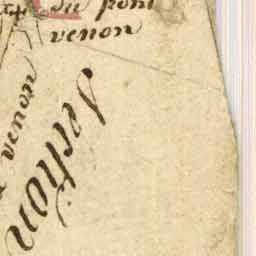 du pont
venon
venon
Section